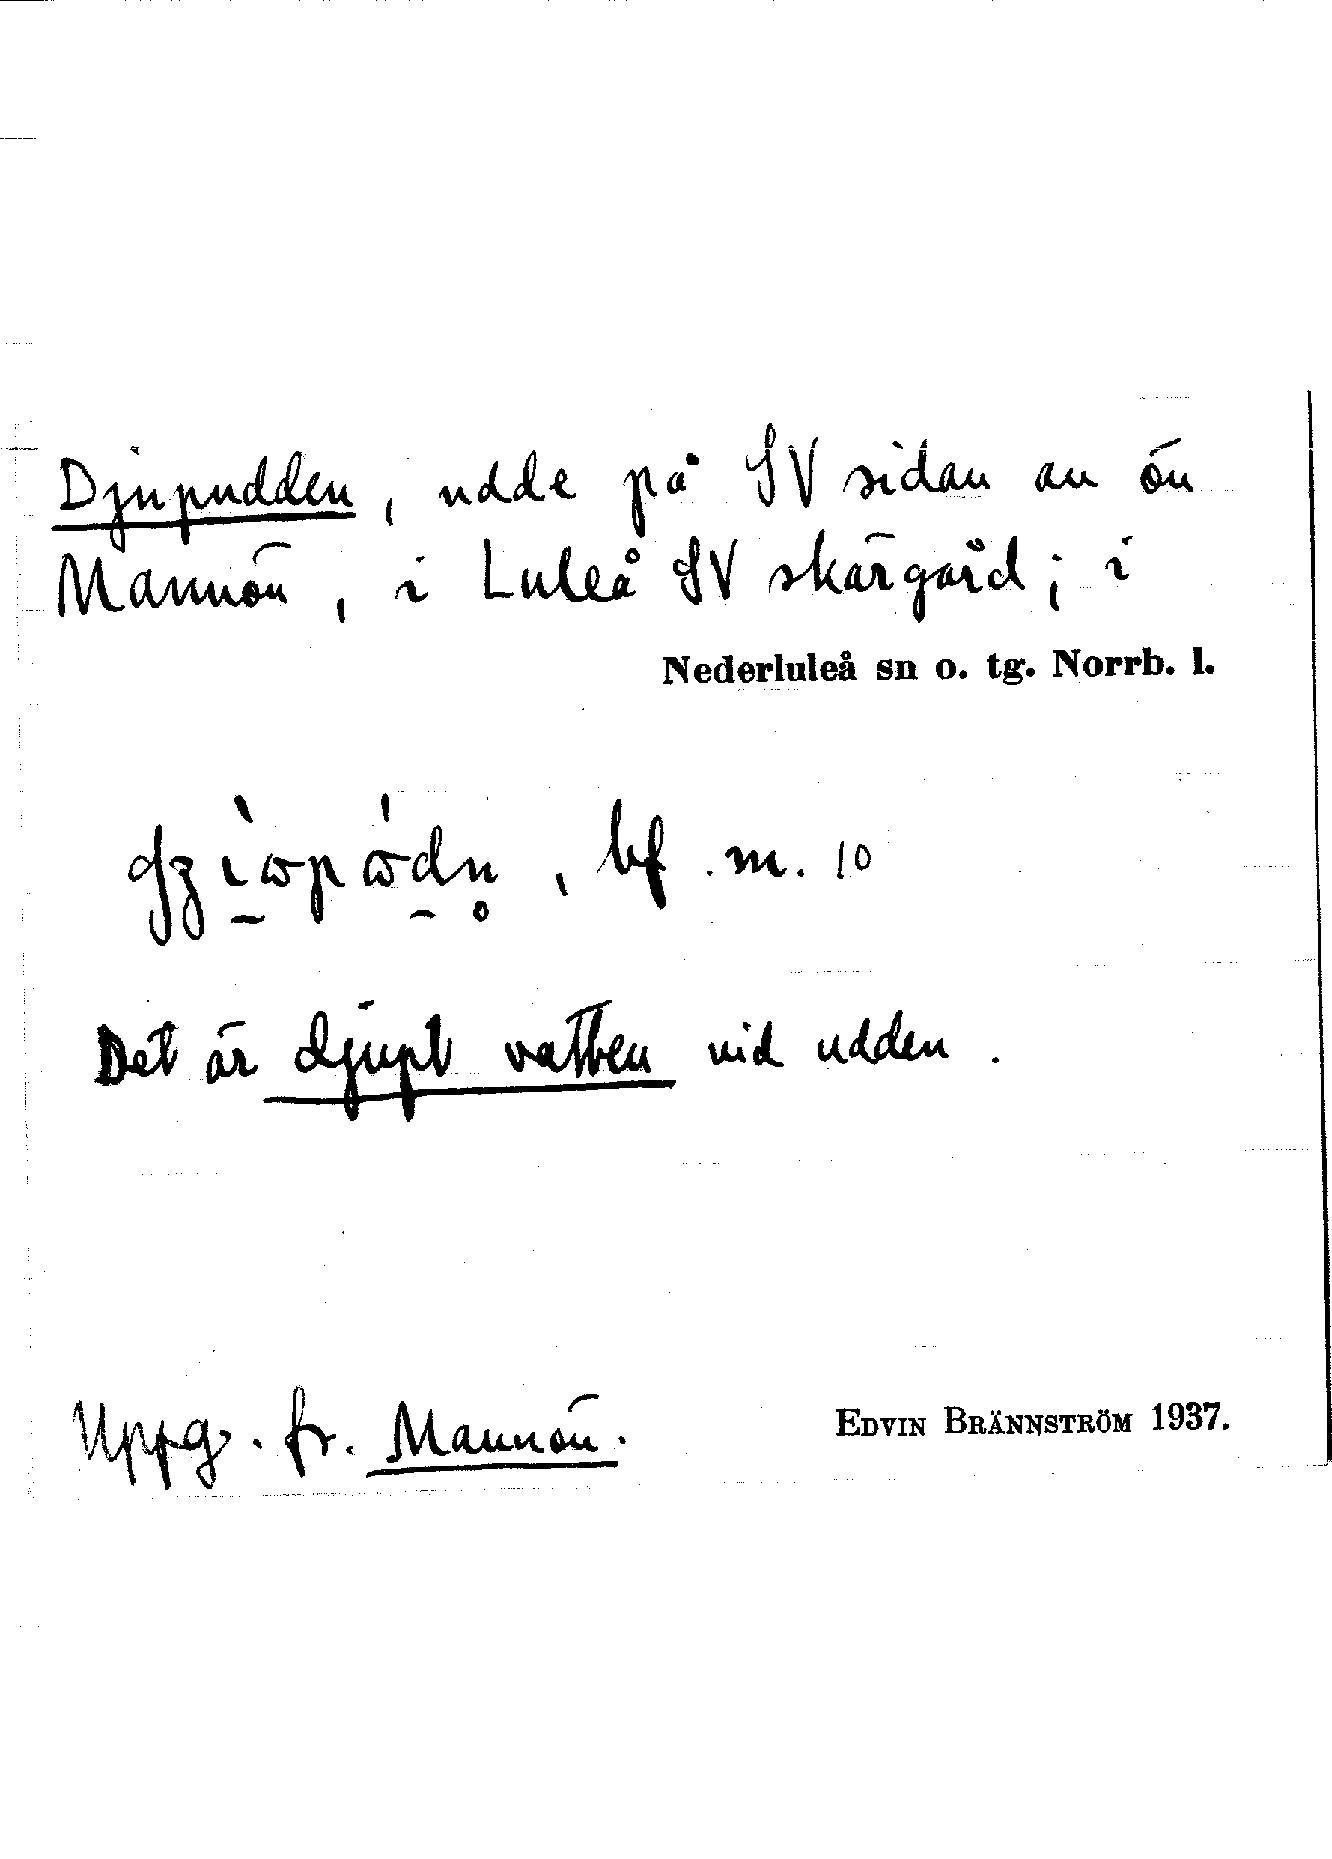 Djupudden, udde på SV sidan av ön
Mannön, i Luleå SV skärgård; i
Nederluleå sn o. tg. Norrb. l.
, bf. m. 10
Det är djupt vatten vid udden.
Uppg. fr. Mannön.
EDVIN BRÄNNSTRÖM 1937.